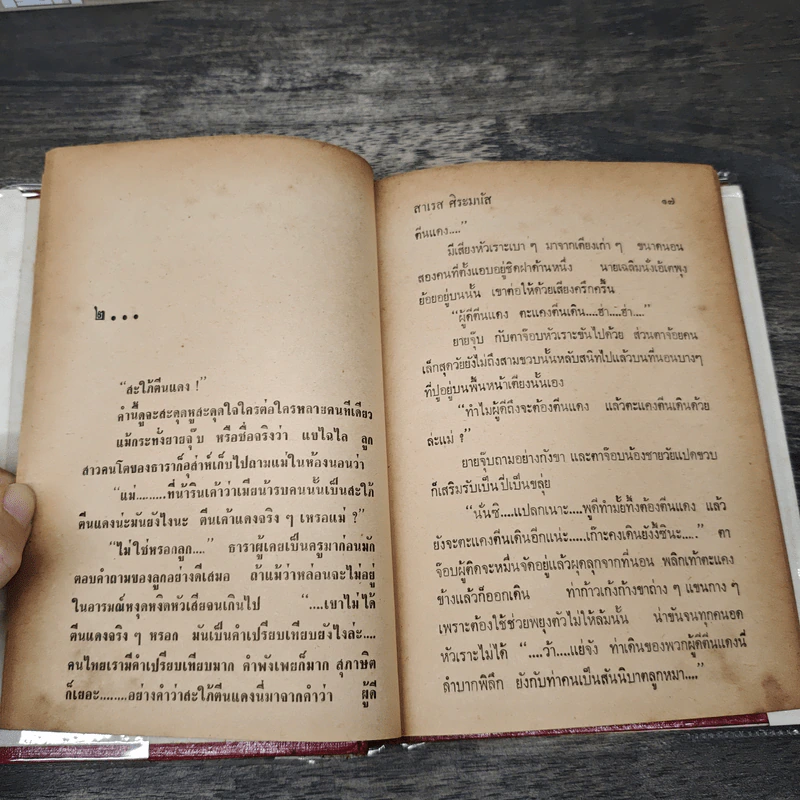 ๒...
“สะใภ้ตีนแดง !”
คำนี้ดูจะสะดุดหูสะดุดใจใครต่อใครหลายคนทีเดียว
แม้กระทั่งยายจุ๊บ หรือชื่อจริงว่า แขไฉไล ลูก
สาวคนโตของธาราก็อุส่าห์เก็บไปถามแม่ในห้องนอนว่า
“แม่.........ที่น้ารินเค้าว่าเมียน้ารบคนนั้นเป็นสะใภ้
ตีนแดงน่ะมันยังไงนะ ตีนเค้าแดงจริง ๆ เหรอแม่ ?”
“ไม่ใช่หรอกลูก....” ธาราผู้เคยเป็นครูมาก่อนมัก
ตอบคำถามของลูกอย่างดีเสมอ ถ้าแม้ว่าหล่อนจะไม่อยู่
ในอารมณ์หงุดหงิดหัวเสียจนเกินไป “....เขาไม่ได้
ตีนแดงจริง ๆ หรอก มันเป็นคำเปรียบเทียบยังไงล่ะ....
คนไทยเรามีคำเปรียบเทียบมาก คำพังเพยก็มาก สุภาษิต
ก็เยอะ........อย่างคำว่าสะใภ้ตีนแดงนี่มาจากคำว่า ผู้ดี
สาเรส ศิระมนัส ๑๗
ตีนแดง....”
มีเสียงหัวเราะเบา ๆ มาจากเตียงเก่า ๆ ขนาดนอน
สองคนที่ตั้งแอบอยู่ชิดฝาด้านหนึ่ง นายเฉลิมนั่งเอ้เตพุง
ย้อยอยู่บนนั้น เขาต่อให้ด้วยเสียงครึกครื้น
“ผู้ดีตีนแดง ตะแคงตีนเดิน....ฮ่า....ฮ่า....”
ยายจุ๊บ กับตาจ๊อบหัวเราะขันไปด้วย ส่วนตาจ้อยคน
เล็กสุดวัยยังไม่ถึงสามขวบนั้นหลับสนิทไปแล้วบนที่นอนบางๆ
ที่ปูอยู่บนพื้นหน้าเตียงนั้นเอง
“ทำไมผู้ดีถึงจะต้องตีนแดง แล้วตะแคงตีนเดินด้วย
ล่ะแม่ ?”
ยายจุ๊บถามอย่างกังขา และตาจ๊อบน้องชายวัยแปดขวบ
ก็เสริมรับเป็นปี่เป็นขลุ่ย
“นั่นซิ....แปลกเนาะ....พูดีทำมั้ยถึงต้องตีนแดง แล้ว
ยังจะตะแคงตีนเดินอีกแน่ะ.....เก๊าะคงเดินยังงี้ซินะ....” ตา
จ๊อบผู้ติดจะหมื่นจัดอยู่แล้วผุดลุกจากที่นอน พลิกเท้าตะแคง
ข้างแล้วก็ออกเดิน ท่าก้าวเก้งก้างขาถ่าง ๆ แขนกาง ๆ
เพราะต้องใช้ช่วยพยุงตัวไม่ให้ล้มนั้น น่าขันจนทุกคนอด
หัวเราะไม่ได้ “....ว้า....แย่จัง ท่าเดินของพวกผู้ดีตีนแดงนี่
ลำบากพิลึก ยังกับท่าคนเป็นสันนิบาตลูกหมา....”